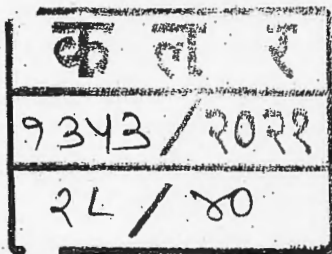 क ल र
१३५३ / २०२१
२८ / ४०